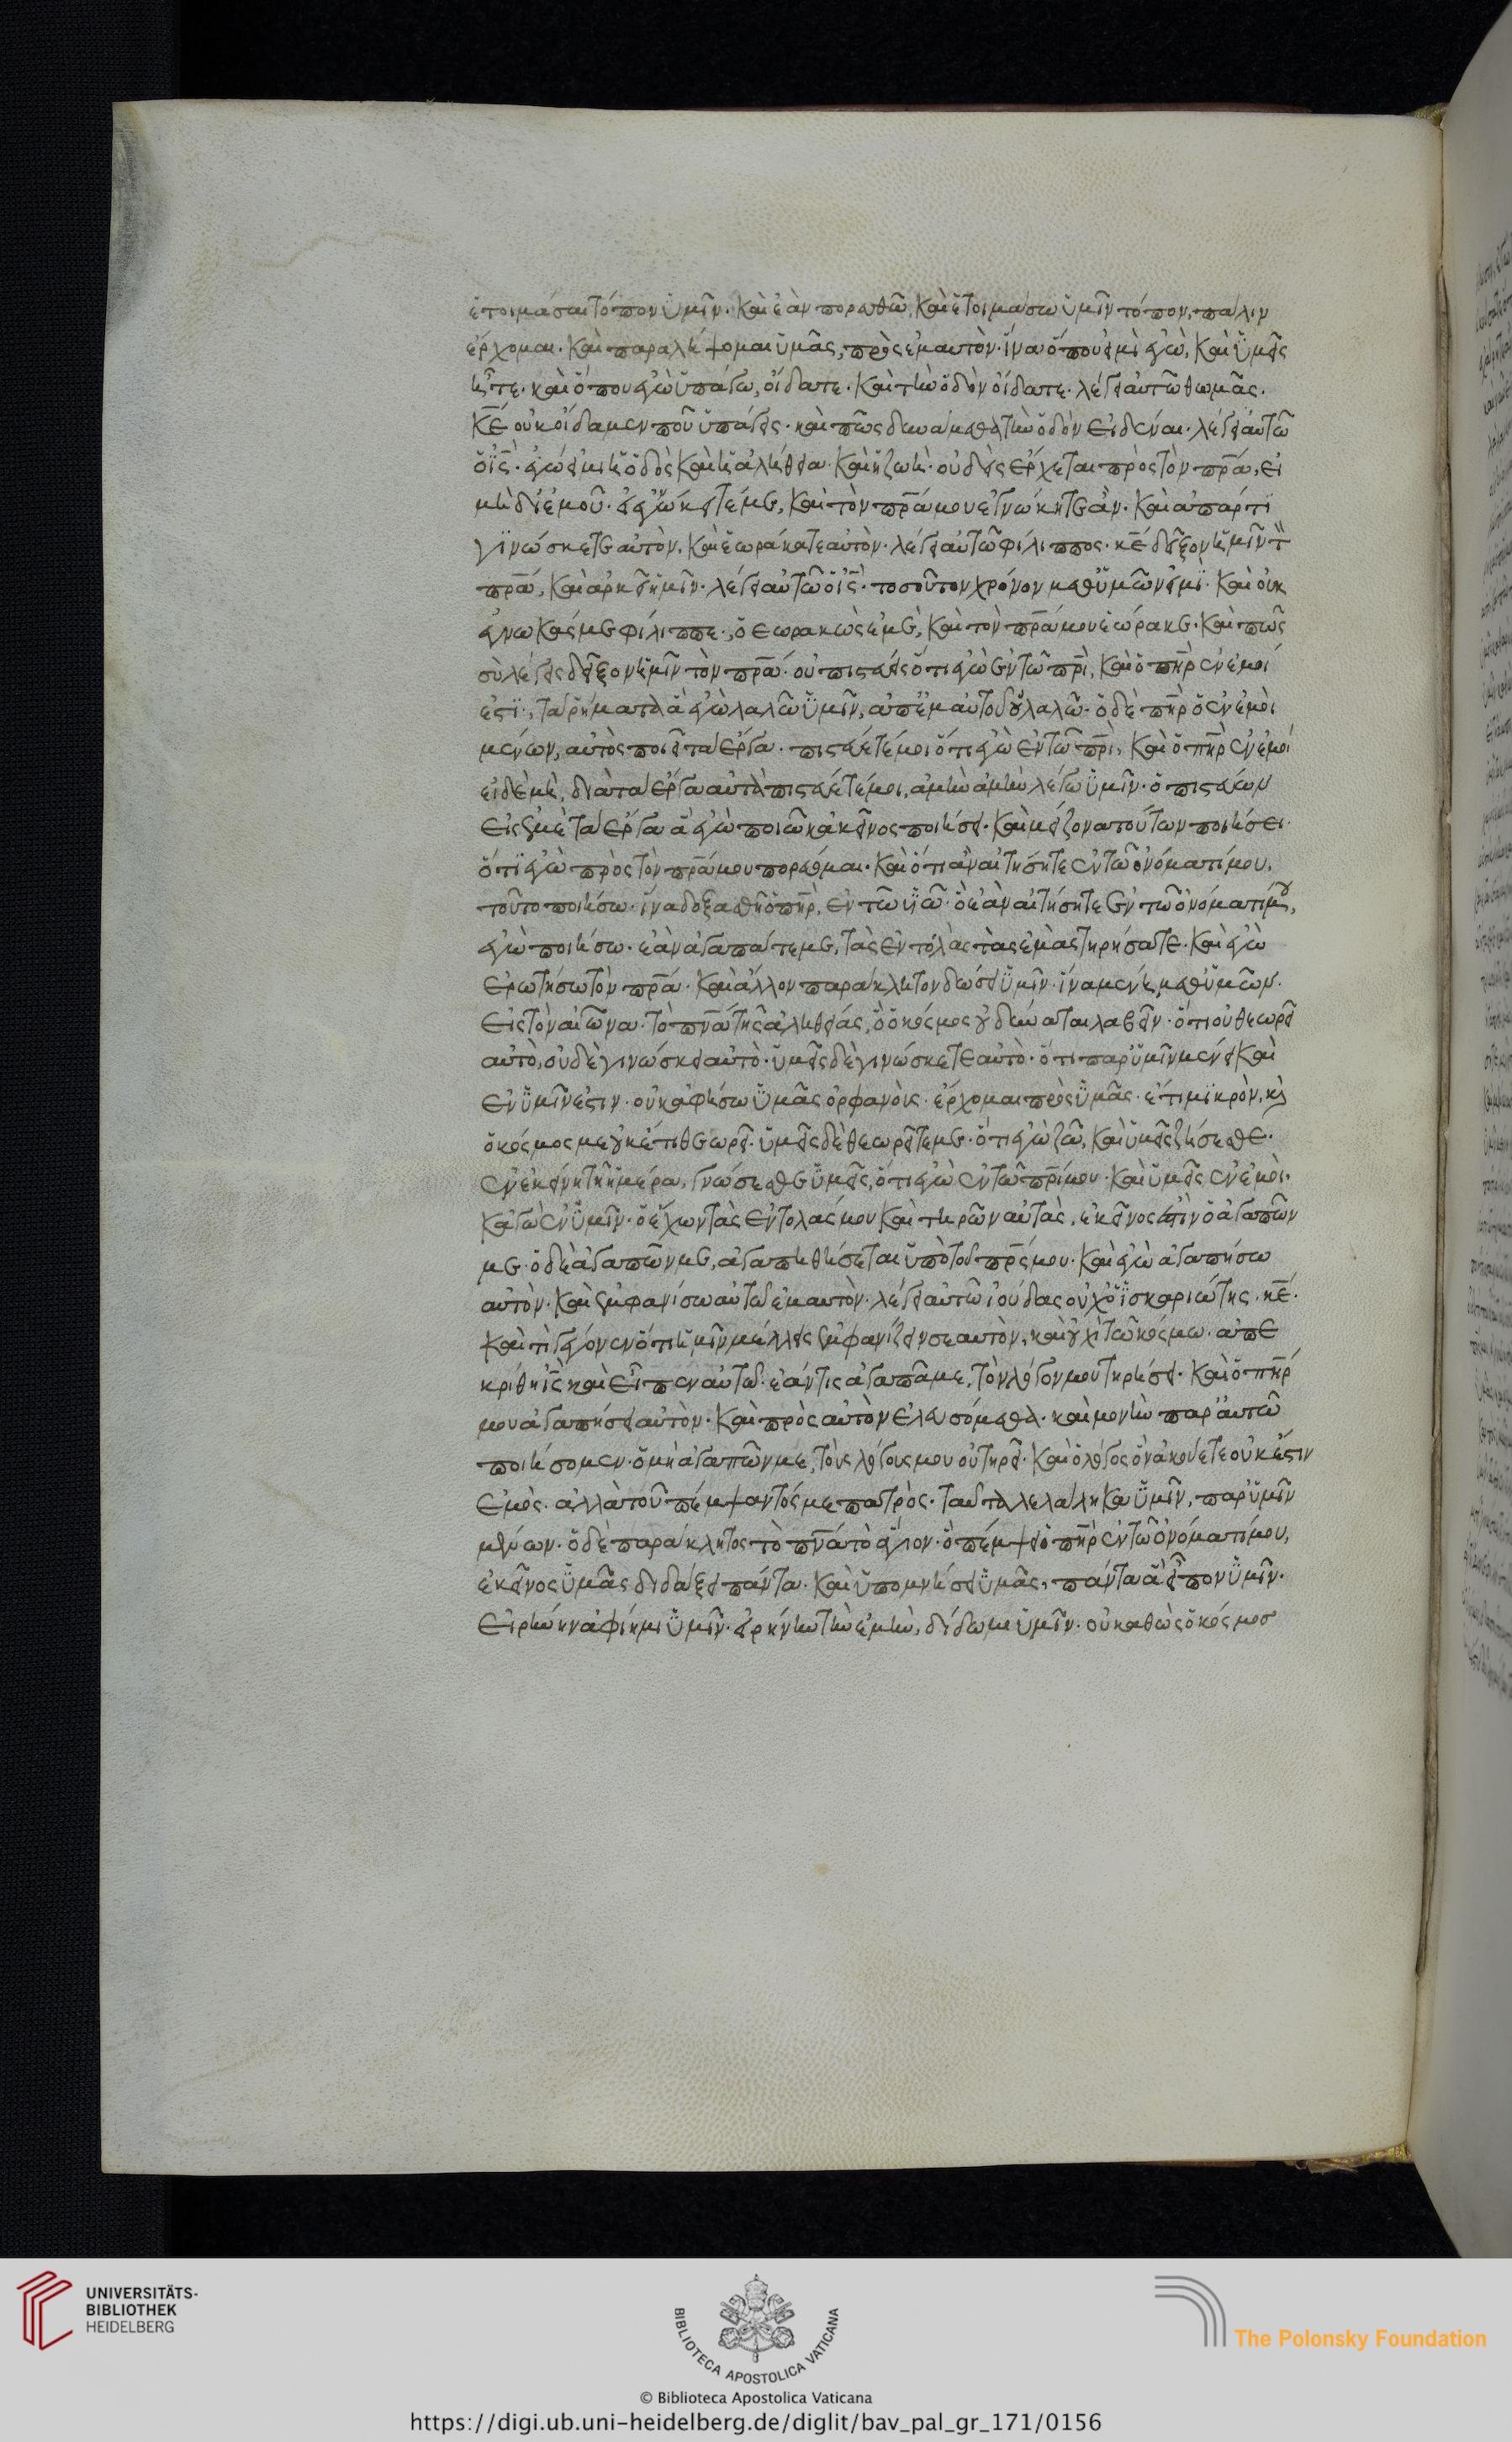 ἑτοιμάσαι τόπον ὑμῖν. καὶ ἐὰν πορευθῶ, καὶ ἑτοιμάσω ὑμῖν τόπον, πάλιν
ἔρχομαι. καὶ παραλήψομαι ὑμᾶς, πρὸς ἐμαυτὸν. ἵνα ὅπου εἰμὶ ἐγὼ, καὶ ὑμεῖς
ἦτε. καὶ ὅπου ἐγὼ ὑπάγω, οἴδατε. καὶ τὴν ὁδὸν οἴδατε. λέγει αὐτῶ θωμᾶς.
κ̅ε̅ οὐκ οἴδαμεν ποῦ ὑπάγεις. καὶ πῶς δυνάμεθα τὴν ὁδὸν εἰδέναι. λέγει αὐτῶ
ὁ ι̅ς̅. ἐγώ εἰμι ἡ ὁδὸς καὶ ἡ ἀλήθεια. καὶ ἡ ζωὴ. οὐδεὶς ἔρχεται πρὸς τὸν π̅ρ̅α̅, εἰ
μὴ δι' ἐμοῦ. εἰ ἐγνώκειτέ με, καὶ τὸν π̅ρ̅α̅ μου ἐγνώκητε ἂν. καὶ απάρτι
γινώσκετε αὐτὸν. καὶ ἑωράκατε αὐτὸν. λέγει αὐτῶ φίλιππος. κ̅ε̅ δεῖξον ἡμῖν τ̅
π̅ρ̅α̅, καὶ αρκεῖ ἡμῖν. λέγει αὐτῶ ὁ ι̅ς̅. τοσοῦτον χρόνον μεθ' ὑμῶν εἰμὶ. καὶ οὐκ
ἔγνωκάς με φίλιππε., ὁ εωρακὼς ἐμὲ, καὶ τὸν π̅ρ̅α̅ μου ἑώρακε. καὶ πῶς
σὺ λέγεις δεῖξον ἡμῖν τὸν π̅ρ̅α̅. οὐ πιστεύεις ὅτι ἐγὼ ἐν τῶ π̅ρ̅ι̅, καὶ ὁ π̅η̅ρ̅ ἐν ἐμοί
ἐστι., τα ρήματα ἃ ἐγὼ λαλῶ ὑμῖν, απ' ἐμαυτοῦ οὐ λαλῶ. ὁ δὲ π̅η̅ρ̅ ὁ ἐν ἐμοὶ
μένων, αὐτὸς ποιεῖ τα ἔργα. πιστεύετέ μοι ὅτι ἐγὼ ἐν τῶ π̅ρ̅ι̅, καὶ ὁ π̅η̅ρ̅ ἐν ἐμοί
εἰ δὲ μὴ, διὰ τα ἔργα αὐτὰ πιστεύετέ μοι, ἀμὴν ἀμὴν λέγω ὑμῖν. ὁ πιστεύων
εἰς ἐμὲ τα ἔργα ἃ ἐγὼ ποιῶ κἀκεῖνος ποιήσει. καὶ μείζονα τούτων ποιήσει.
ὅτι ἐγὼ πρὸς τὸν π̅ρ̅α̅ μου πορεύομαι. καὶ ὅτι ἂν αἰτήσητε ἐν τῶ ὀνόματί μου,
τοῦτο ποιήσω. ἵνα δοξασθῆ ὁ π̅η̅ρ̅, ἐν τῶ υ̅ω̅. ὃ ἐὰν αἰτήσητε ἐν τῶ ὀνόματί μου,
ἐγὼ ποιήσω. ἐὰν ἀγαπάτε με, τὰς ἐντολὰς τὰς ἐμὰς τηρήσατε. καὶ ἐγὼ
ἐρωτήσω τὸν π̅ρ̅α̅. καὶ ἄλλον παράκλητον δώσει ὑμῖν. ἵνα μένη μεθ' ὑμῶν.
εἰς τὸν αἰῶνα. τὸ π̅ν̅α̅ τῆς ἀληθείας, ὃ ὁ κόσμος οὐ δύναται λαβεῖν. ὅτι οὐ θεωρεῖ
αὐτὸ, οὐδὲ γινώσκει αὐτὸ. ὑμεῖς δὲ γινώσκετε αὐτὸ. ὅτι παρ' ὑμῖν μένει καὶ
ἐν ὑμῖν ἐστιν. οὐκ ἀφήσω ὑμᾶς ὀρφανούς. ἔρχομαι πρὸς ὑμᾶς. ἔτι μικρὸν, καὶ
ὁ κόσμος με οὐκέτι θεωρεῖ. ὑμεῖς δὲ θεωρεῖτε με. ὅτι ἐγὼ ζῶ, καὶ ὑμεῖς ζήσεσθε.
ἐν ἐκείνη τῆ ἡμέρα, γνώσεσθε ὑμεῖς, ὅτι ἐγὼ ἐν τῶ π̅ρ̅ι̅ μου. καὶ ὑμεῖς ἐν ἐμοὶ.
κἀγὼ ἐν ὑμῖν. ὁ ἔχων τὰς ἐντολάς μου καὶ τηρῶν αὐτὰς, ἐκεῖνος ἐστὶν ὁ ἀγαπῶν
με. ὁ δὲ ἀγαπῶν με, ἀγαπηθήσεται ὑπὸ τοῦ π̅ρ̅ς̅ μου. καὶ ἐγὼ ἀγαπήσω
αὐτὸν. καὶ ἐμφανίσω αὐτῶ ἐμαυτὸν. λέγει αὐτῶ ἰούδας οὐχ ὁ ἰσκαριώτης. κ̅ε̅.
καὶ τί γέγονεν ὅτι ἡμῖν μέλλεις ἐμφανίζειν σεαυτὸν, καὶ οὐχὶ τῶ κόσμω. απε
κρίθη ι̅ς̅ καὶ εἶπεν αὐτῶ. ἐάν τις ἀγαπᾶ με, τὸν λόγον μου τηρήσει. καὶ ὁ π̅η̅ρ̅
μου ἀγαπήσει αὐτὸν. καὶ πρὸς αὐτὸν ἐλευσόμεθα. καὶ μονὴν παρ' αὐτῶ
ποιήσομεν. ὁ μὴ ἀγαπῶν με, τοὺς λόγους μου οὐ τηρεῖ. καὶ ὁ λόγος ὃν ἀκούετε οὐκ ἔστιν
ἐμὸς. ἀλλὰ τοῦ πέμψαντός με πατρὸς. ταῦτα λελάληκα ὑμῖν, παρ' ὑμῖν
μένων. ὁ δὲ παράκλητος τὸ π̅ν̅α̅ τὸ ἅγιον. ὃ πέμψει ὁ π̅η̅ρ̅ ἐν τῶ ὀνόματί μου,
ἐκεῖνος ὑμᾶς διδάξει πάντα. καὶ ὑπομνήσει ὑμᾶς, πάντα ἃ εἶπον ὑμῖν.
εἰρήνην ἀφίημι ὑμῖν. εἰρήνην τὴν ἐμὴν, δίδωμι ὑμῖν. οὐ καθὼς ὁ κόσμος
UNIVERSITÄTS-
BIBLIOTHEK
HEIDELBERG
BIBLIOTECA APOSTOLICA VATICANA
The Polonsky Foundation
© Biblioteca Apostolica Vaticana
https://digi.ub.uni-heidelberg.de/diglit/bav_pal_gr_171/0156